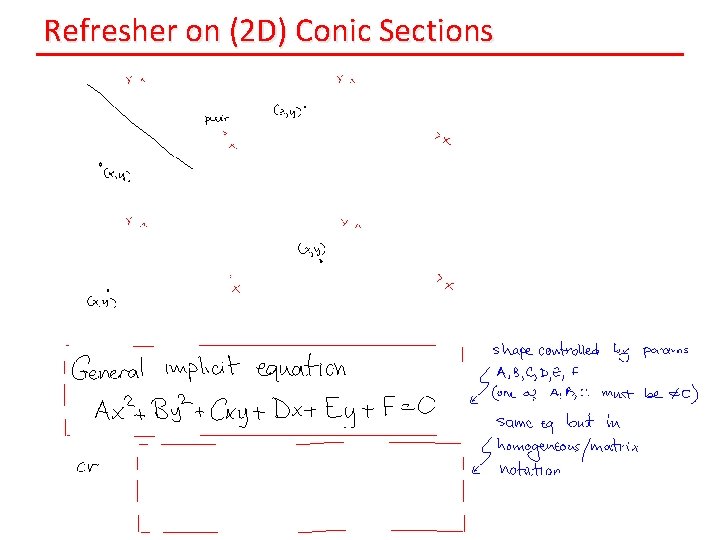 Refresher on (2D) Conic Sections
Y
Y
pair
(x,y)
x
x
(x,y)
Y
Y
(x,y)
x
x
(x,y)
General implicit equation
Ax²+ By²+ Cxy+ Dx+ Ey+ F=0
or
shape controlled by params
A, B, C, D, E, F
must be ≠0)
same eq but in
homogeneous/matrix
notation